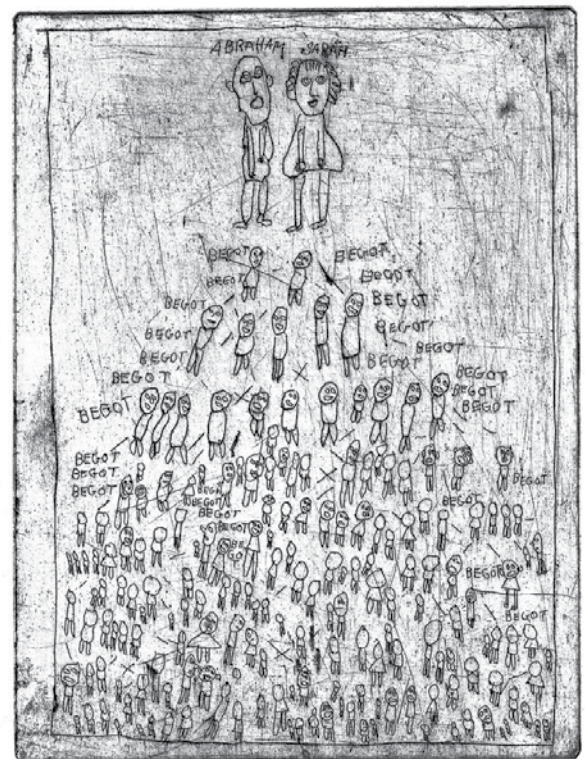 ABRAHAM SARAH
BEGOT BEGOT
BEGOT BEGOT
BEGOT BEGOT
BEGOT BEGOT
BEGOT BEGOT
BEGOT BEGOT
BEGOT BEGOT
BEGOT BEGOT
BEGOT BEGOT
BEGOT
BEGOT BEGOT
BEGOT
BEGOT BEGOT
BEGOT
BEGOT
BEGOT
BEGOT